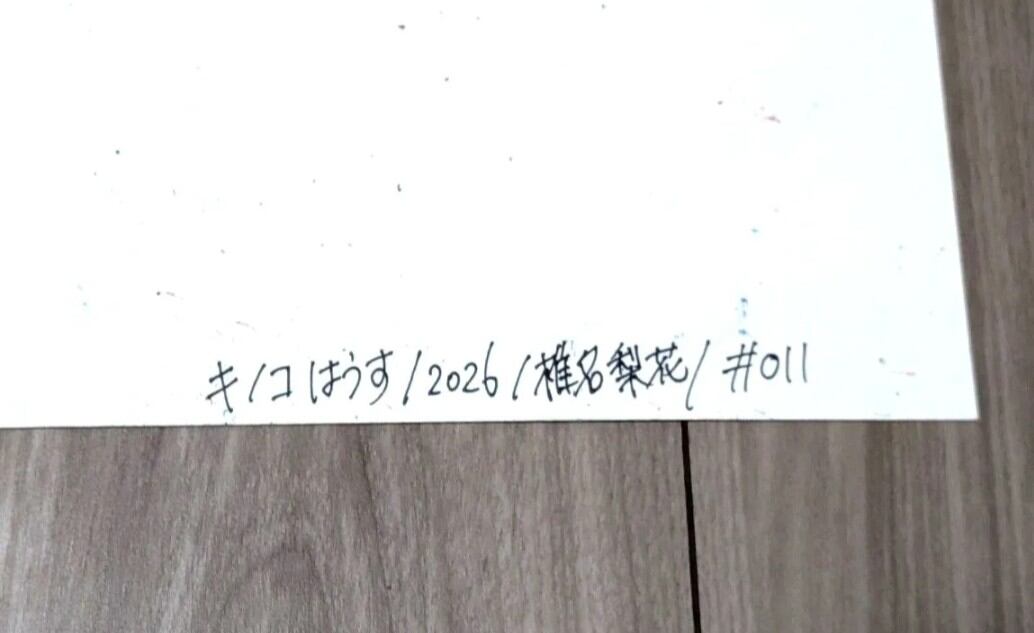 キノコはうす/2026/椎名梨花/#011